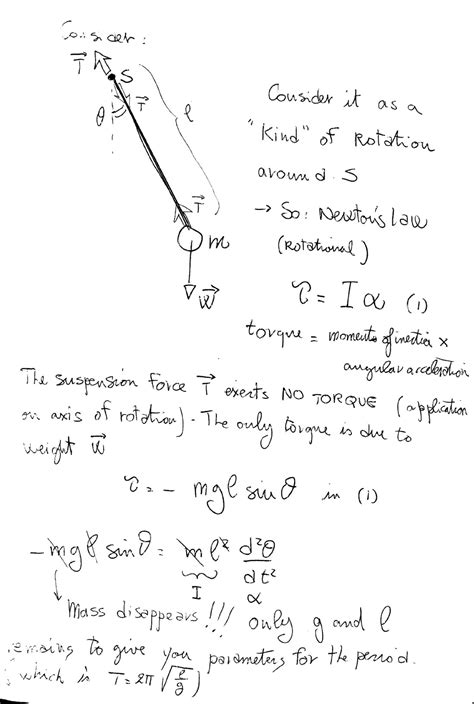 Consider:
T
S
θ
T
l
T
m
W
Consider it as a
"Kind" of Rotation
around S
→ So: Newton's Law
(Rotational)
τ = I α (1)
torque = moment of inertia ×
angular acceleration
The suspension force T exerts NO TORQUE (application
on axis of rotation) - The only torque is due to
weight W
τ = - mgl sinθ in (1)
-mgl sinθ = ml² d²θ
dt²
I
α
Mass disappears!!! only g and l
remains to give you parameters for the period.
which is T = 2π √(l/g))